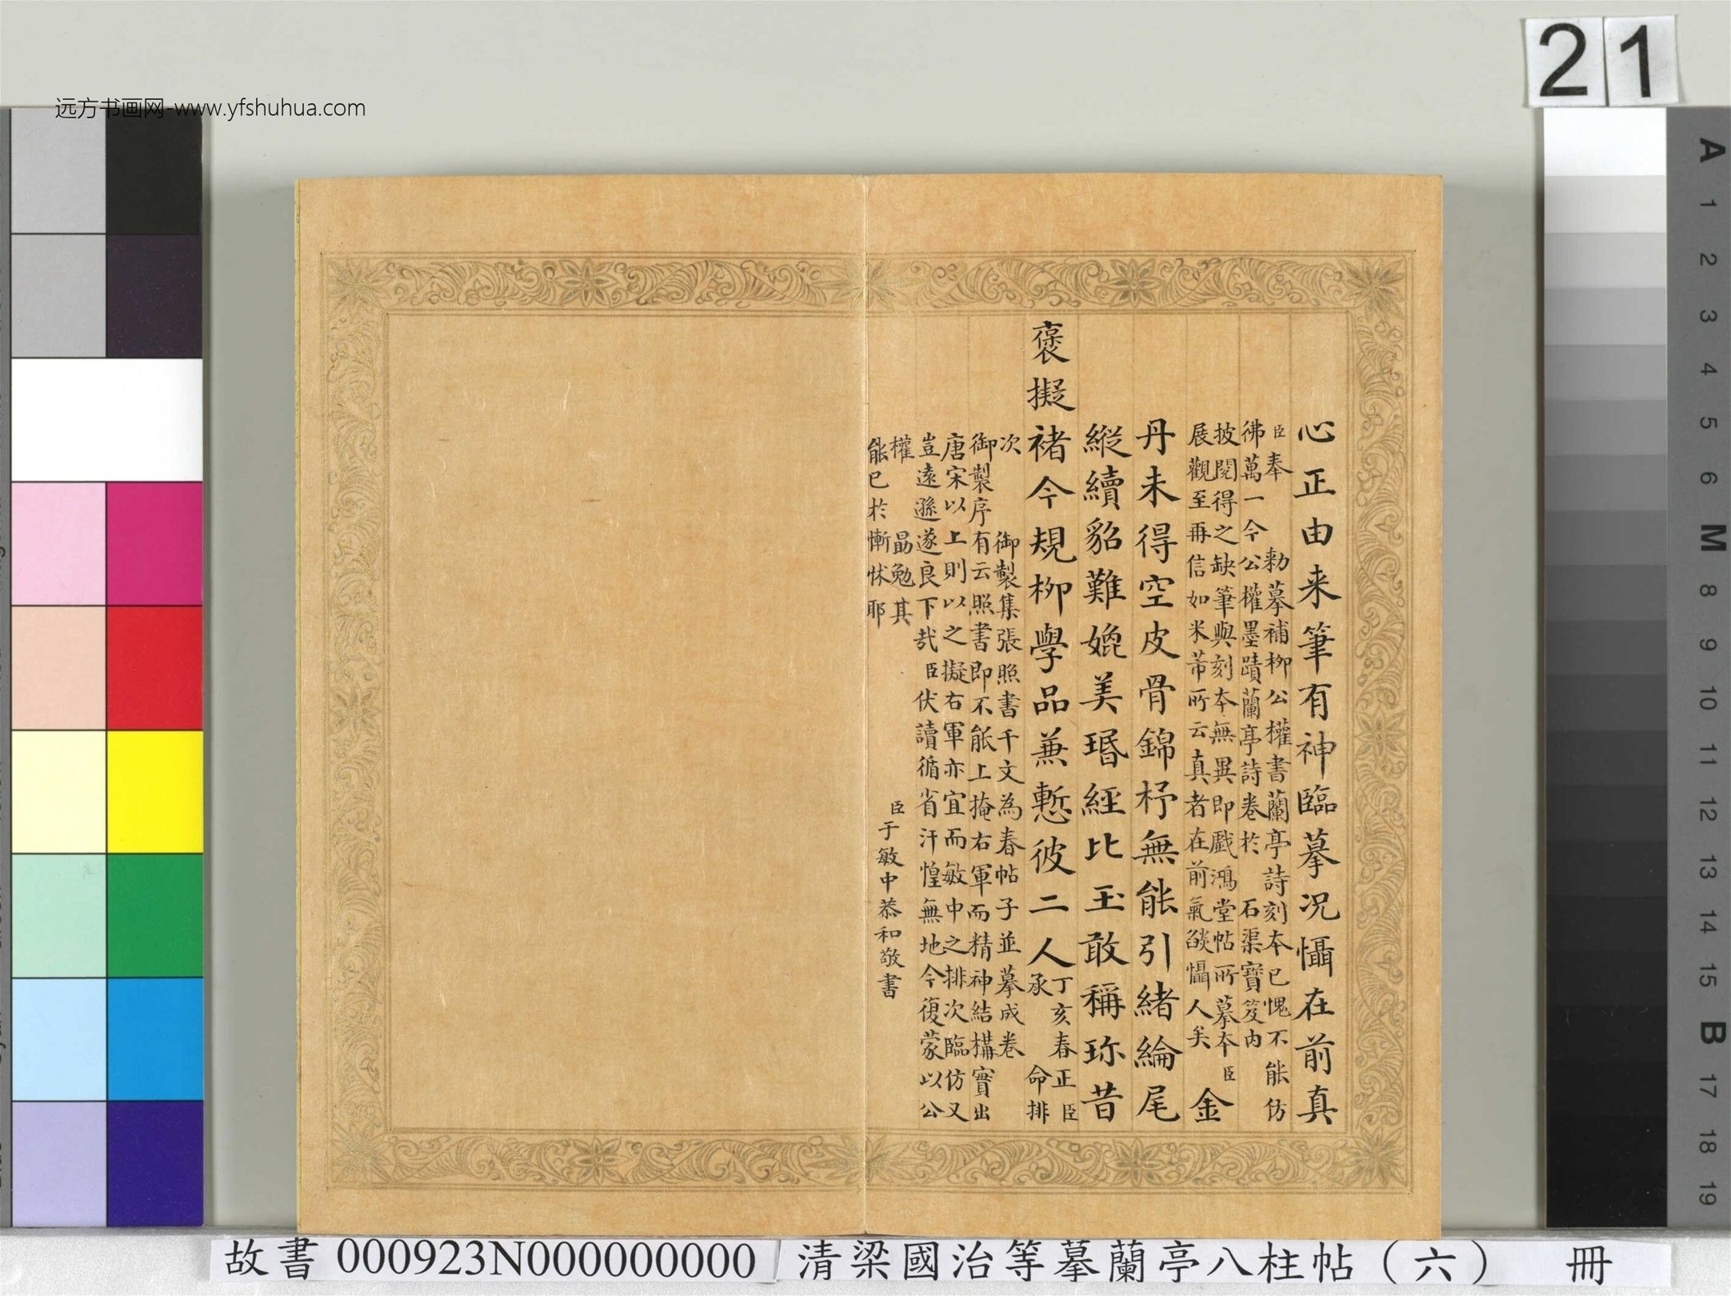 远方书画网-www.yfshuhua.com
21
心正由来筆有神臨摹况懾在前真
臣奉 勅摹補柳公權書蘭亭詩刻夲已愧不能仿
彿萬一今公權墨蹟蘭亭詩卷於 石渠寶笈内
披閱得之缺筆與刻夲無異即戲鴻堂帖所摹夲臣
展觀至再信如米芾所云真者在前氣燄懾人矣
金
丹未得空皮骨錦杼無能引緒綸尾
縱續貂難媲美瑉經比玉敢稱珎昔
褒擬褚今規栁學品蒹慙彼二人
丁亥春正臣
承 命排
次 御製集張照書千文為春帖子並摹成卷
御製序有云照書即不能上掩右軍而精神結構實出
唐宋以上則以之擬右軍亦宜而敏中之排次臨仿又
豈遠遜遂良下哉臣伏讀循省汗惶無地今復蒙以公
權 勗勉其
能已於慚怵耶
臣于敏中恭和敬書
A
1
2
3
4
5
6
M
8
9
10
11
12
13
14
15
B
17
18
19
故書 000923N000000000 清梁國治等摹蘭亭八柱帖（六） 冊